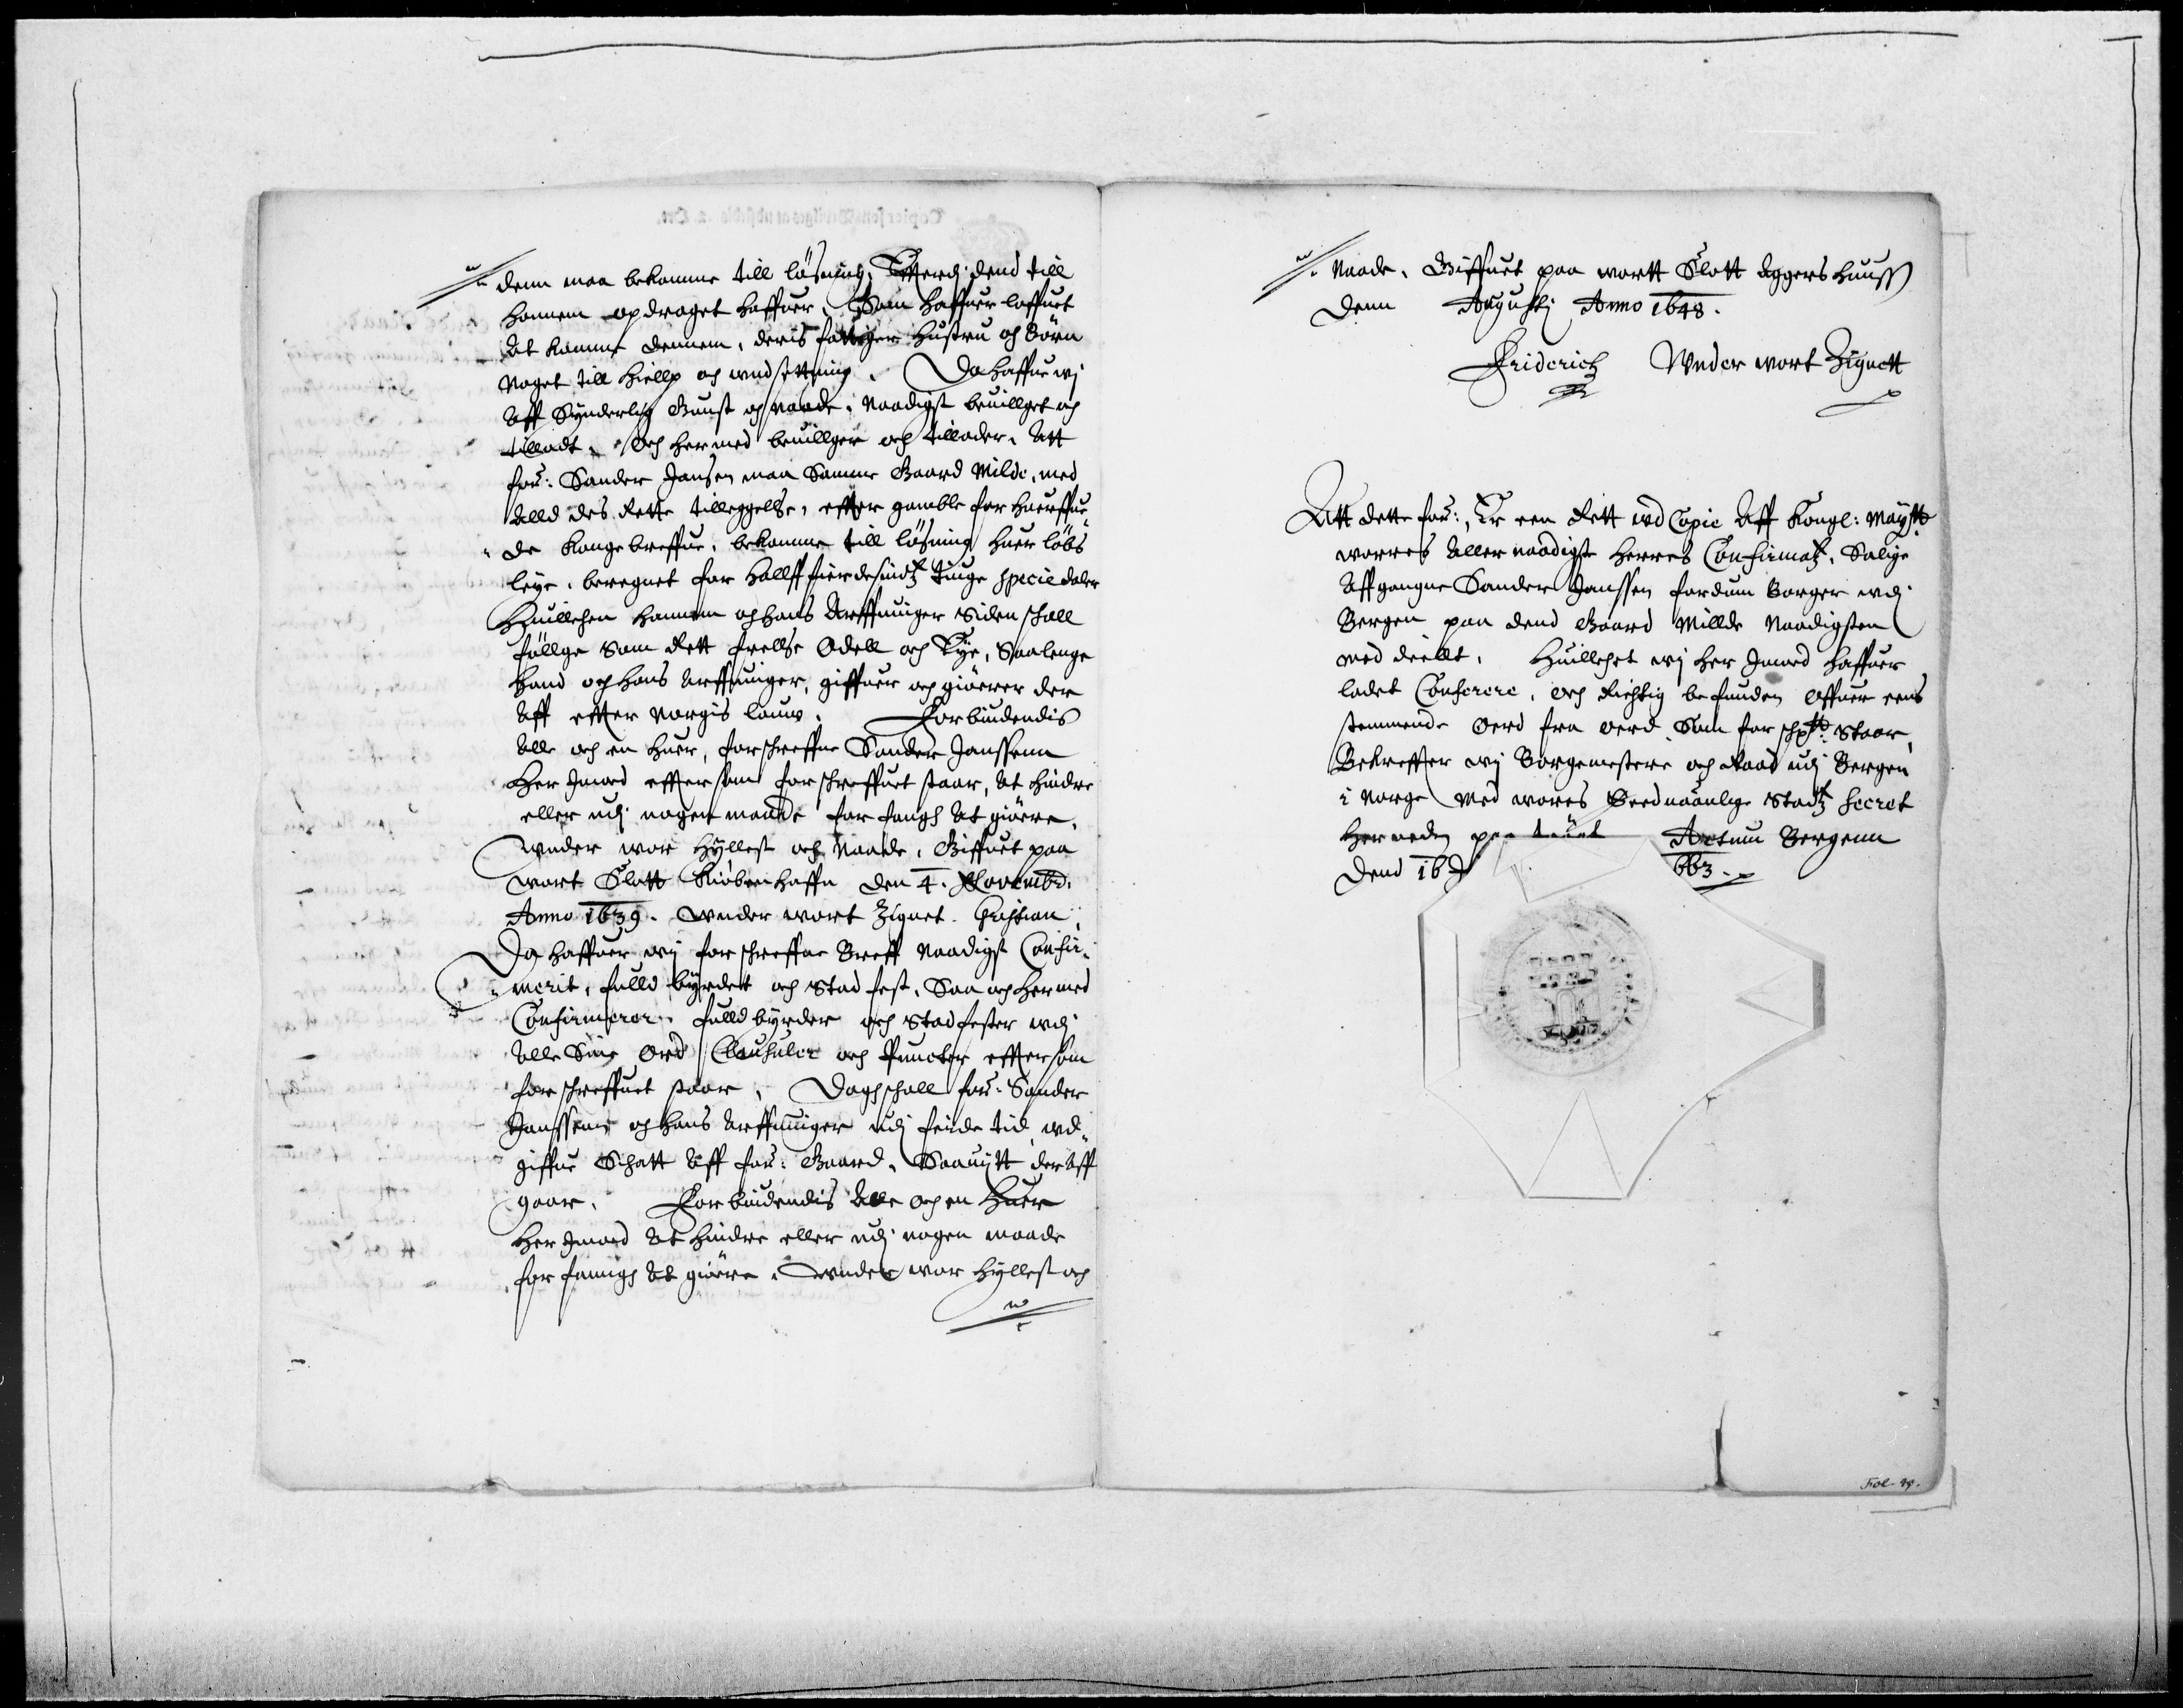 denn maa bekomme till lösning, Efterdj dend till
hannem opdraget haffuer, Som haffuer loffuet
At komme dennem, deris fattiger Hustru och Börn
Noget till hielp och undsettning. Da haffue wj
Aff Synderlig Gunst och naade, Naadigst beuillget och
tilladt, Och hermed beuillger och tillader, Att
for: Sander Jansen maa Samme Gaard Milde, med
Alld des Rette tilleggelse, efter gamble for huerffue
de Kongebreffue, bekomme till lösning huer löbs
leye, beregnet for halff fierdesindtz Tiuge specie daler
Huillchen hannem och hans Arffuinger Siden schall
föllge Som Rett frellse Odell och Eye, Saalenge
hand och hans Arffuinger, giffuer och giörer der
Aff efter Norgis lauw. Forbiudendis
Alle och en huer, forschreffne Sander Janssenn
Her Jmod eftersom forschreffuet staar, At hindre
eller udj nogen maade forfangh At giöre,
Wnder wor Hyllest och Naade, Giffuet paa
Wort Slott Kiöbenhaffn den 4. Novembr.
Anno 1639. Wnder wort Zignet. Christian
Da haffuer wij forschreffne Breff Naadigst Confir-
merit, fulld byrdet och Stadfest, Saa och hermed
Confirmerer, fulldbyrder och Stadfester wdj
Alle Sine Ord Clausuler och Puncter eftersom
forschreffuet staar, Dogh schall for: Sander
Janssenn och hans Arffuinger udj feide tid wd-
giffue Schatt Aff for: Gaard, Saauitt der Aff
gaar. Forbiudendis Alle och en Huer
Her Jmod At hindre eller udj nogen maade
forfangh At giöre, Wnder wor Hyllest och
Naade, Giffuet paa wortt Slott Aggershuuss
Denn Augustj Anno 1648.
Friderich Wnder wort Zignett
Att dette for:, Er een Rett wd Copie Aff Kongl: Maÿtts
worres Allernaadigste Herres Confirmatz, Salige
Affgangne Sander Janssen fordum Borger udj
Bergen paa dend Gaard Millde Naadigsten
med deellt, Huillchet wj her Jmod haffuer
ladet Conferere, och Richtig befunden offuer eens
stemmende Oerd fra oerd Som for schptt: staar,
Bekreffter wij Borgemestere och Raad udj Bergen
i Norge Med wores Seduaanlige Stadtz Secret
her neden paa Actum Bergenn
Dend 16 663.
Fol. 49.